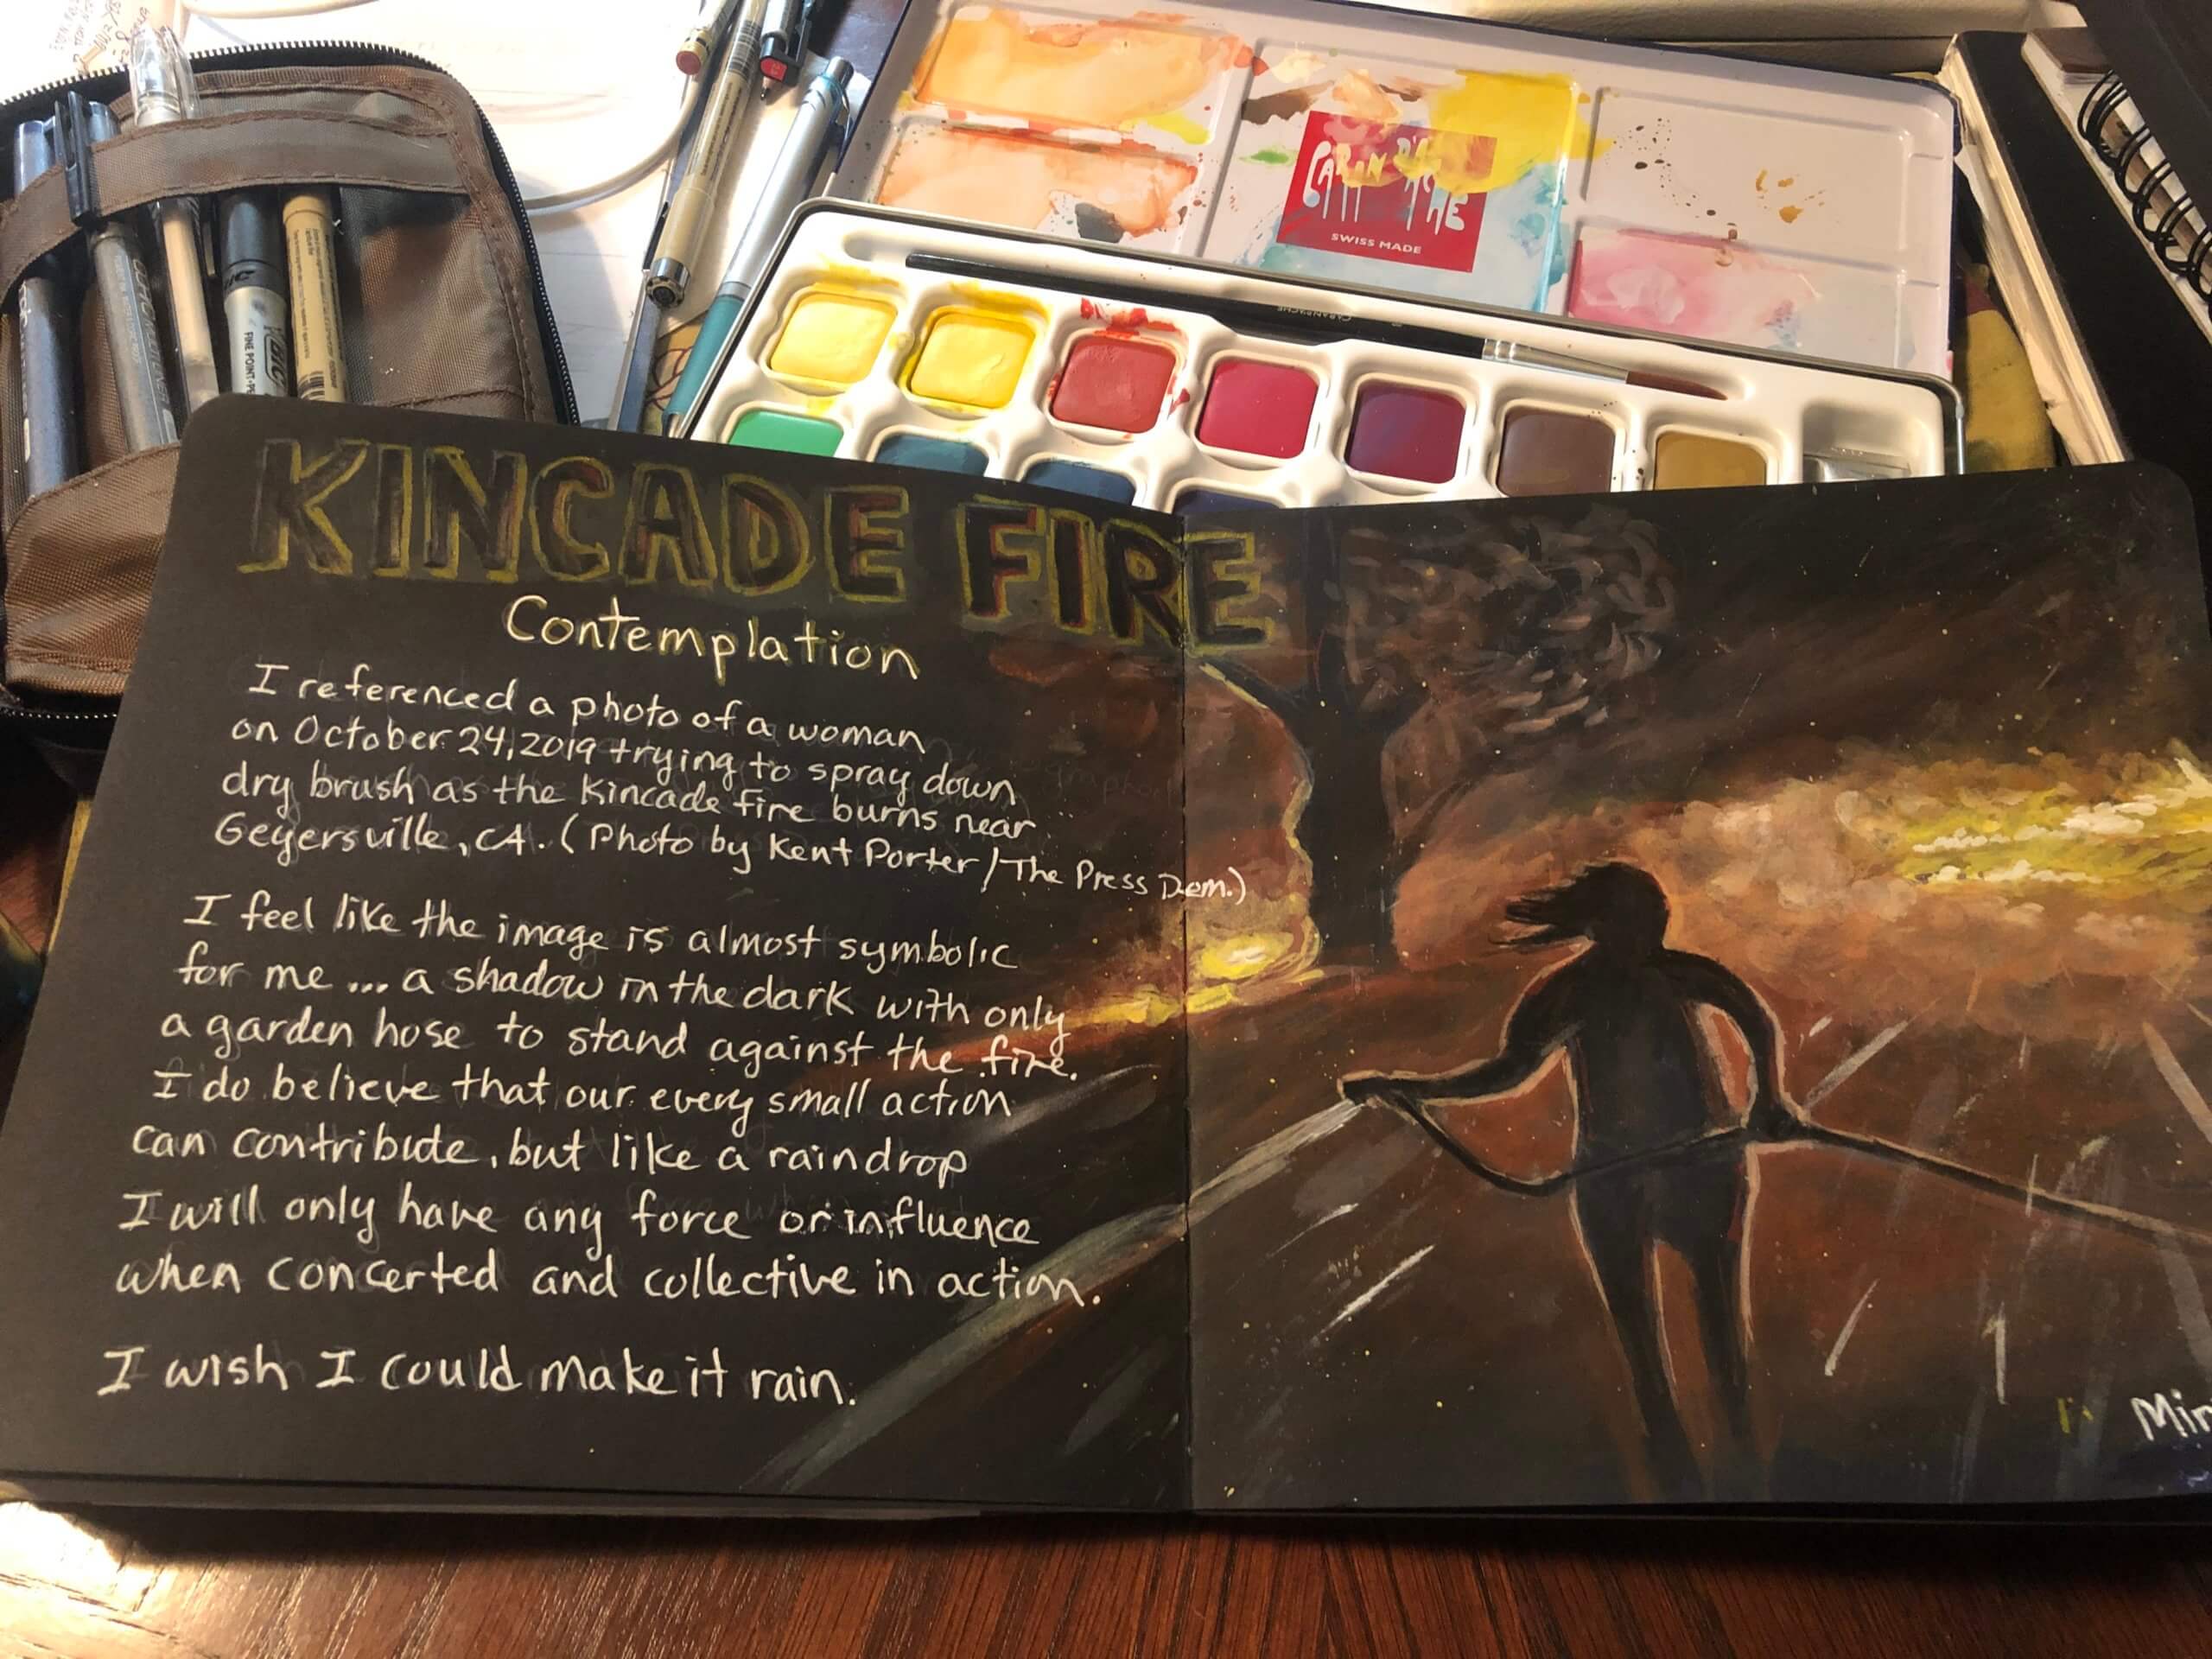 CARAN D'ACHE
SWISS MADE
CARAN D'ACHE
BIC
FINE POINT
KINCADE FIRE
Contemplation
I referenced a photo of a woman
on October 24, 2019 trying to spray down
dry brush as the Kincade fire burns near
Geyersville, CA. (Photo by Kent Porter / The Press Dem.)
I feel like the image is almost symbolic
for me ... a shadow in the dark with only
a garden hose to stand against the fire.
I do believe that our every small action
can contribute, but like a raindrop
I will only have any force or influence
when concerted and collective in action.
I wish I could make it rain.
Min